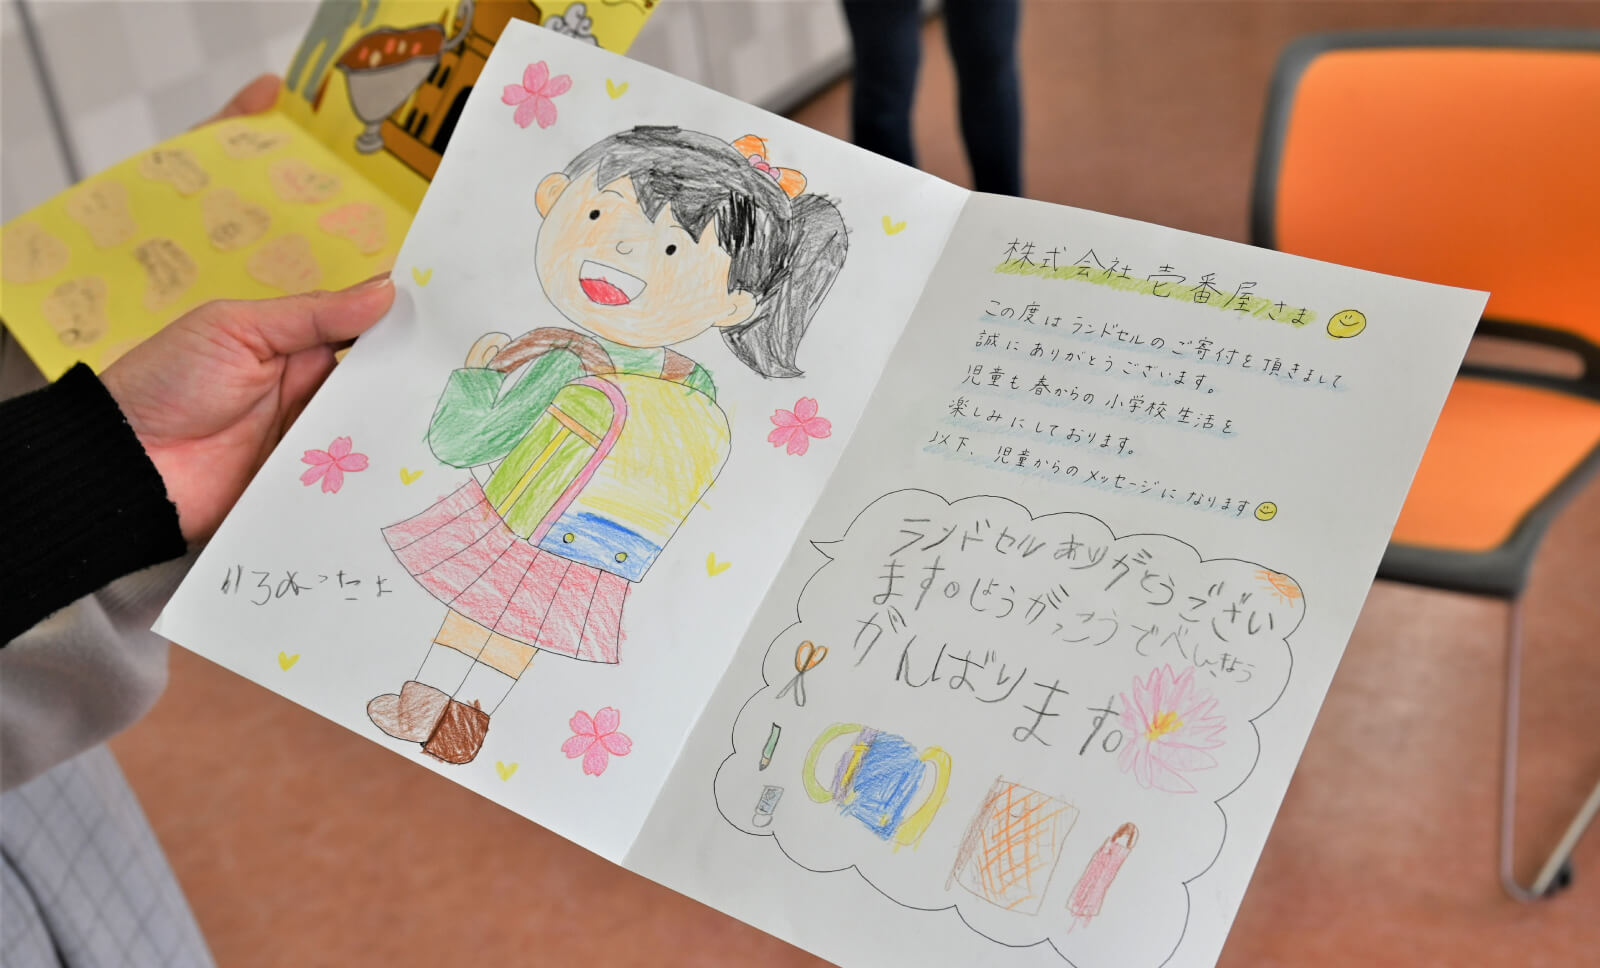 がろぬったよ
株式会社壱番屋さま
この度はランドセルのご寄付を頂きまして
誠にありがとうございます。
児童も春からの小学校生活を
楽しみにしております。
以下、児童からのメッセージになります
ランドセルありがとうござい
ます。しょうがっこうでべんきょう
がんばります。